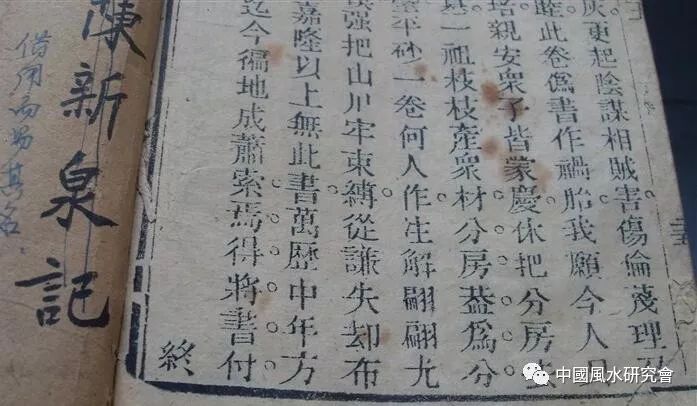 灰更起陰謀相賊害傷倫蔑理
睦此卷偽書作禍胎我願今人
培親安衆子皆蒙慶休把分房
一祖枝枝產衆材分房葢為分
平砂一卷何人作注解翩翩尤
强把山川牢束縛從謙失却布
嘉隆以上無此書萬歷中年方
迄今徧地成蕭索焉得將書付
終
陳新泉記
借用而易其名
中國風水研究會